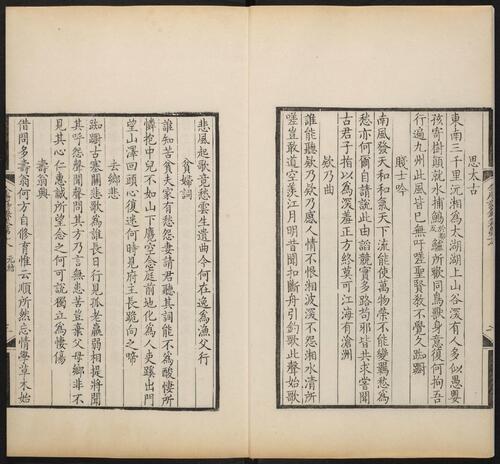 思太古
東南三千里沅湘為太湖湖上山谷深有人多似愚嬰
孩寄樹顛就水捕鷠鱸所歡同鳥獸身意復何拘吾
行遍九州此風皆已無吁嗟聖賢教不覺久踟躕
賤士吟
南風發天和和氣天下流能使萬物榮不能變羈愁為
愁亦何爾自請說此由諂競實多路苟邪皆共求嘗聞
古君子指以為深羞正方終莫可江海有滄洲
欸乃曲
誰能聽欸乃欸乃感人情不恨湘波深不怨湘水清所
嗟豈敢道空羨江月明昔聞扣斷舟引釣歌此聲始歌
悲風起歌竟愁雲生遺曲今何在逸為漁父行
貧婦詞
誰知苦貧夫家有愁怨妻請君聽其詞能不為酸悽所
憐抱中兒不如山下麑空念庭前地化為人吏蹊出門
望山澤回頭心復迷何時見府主長跪向之啼
去鄉悲
踟躕古塞關悲歌為誰長日行見孤老羸弱相提將聞
其呼怨聲聞聲問其方乃言無患苦豈棄父母鄉非不
見其心仁惠誠所望念之何可說獨立為悽傷
壽翁興
借問多壽翁何方自修育惟云順所然忘情學草木始
元結
三